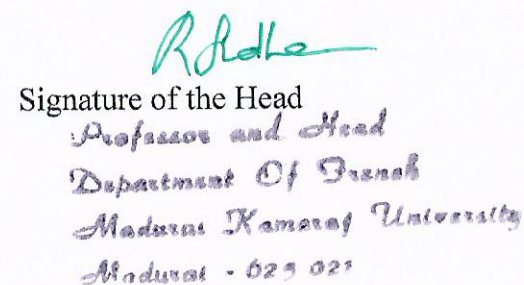 Signature of the Head
Professor and Head
Department Of French
Madurai Kamaraj University
Madurai - 625 021